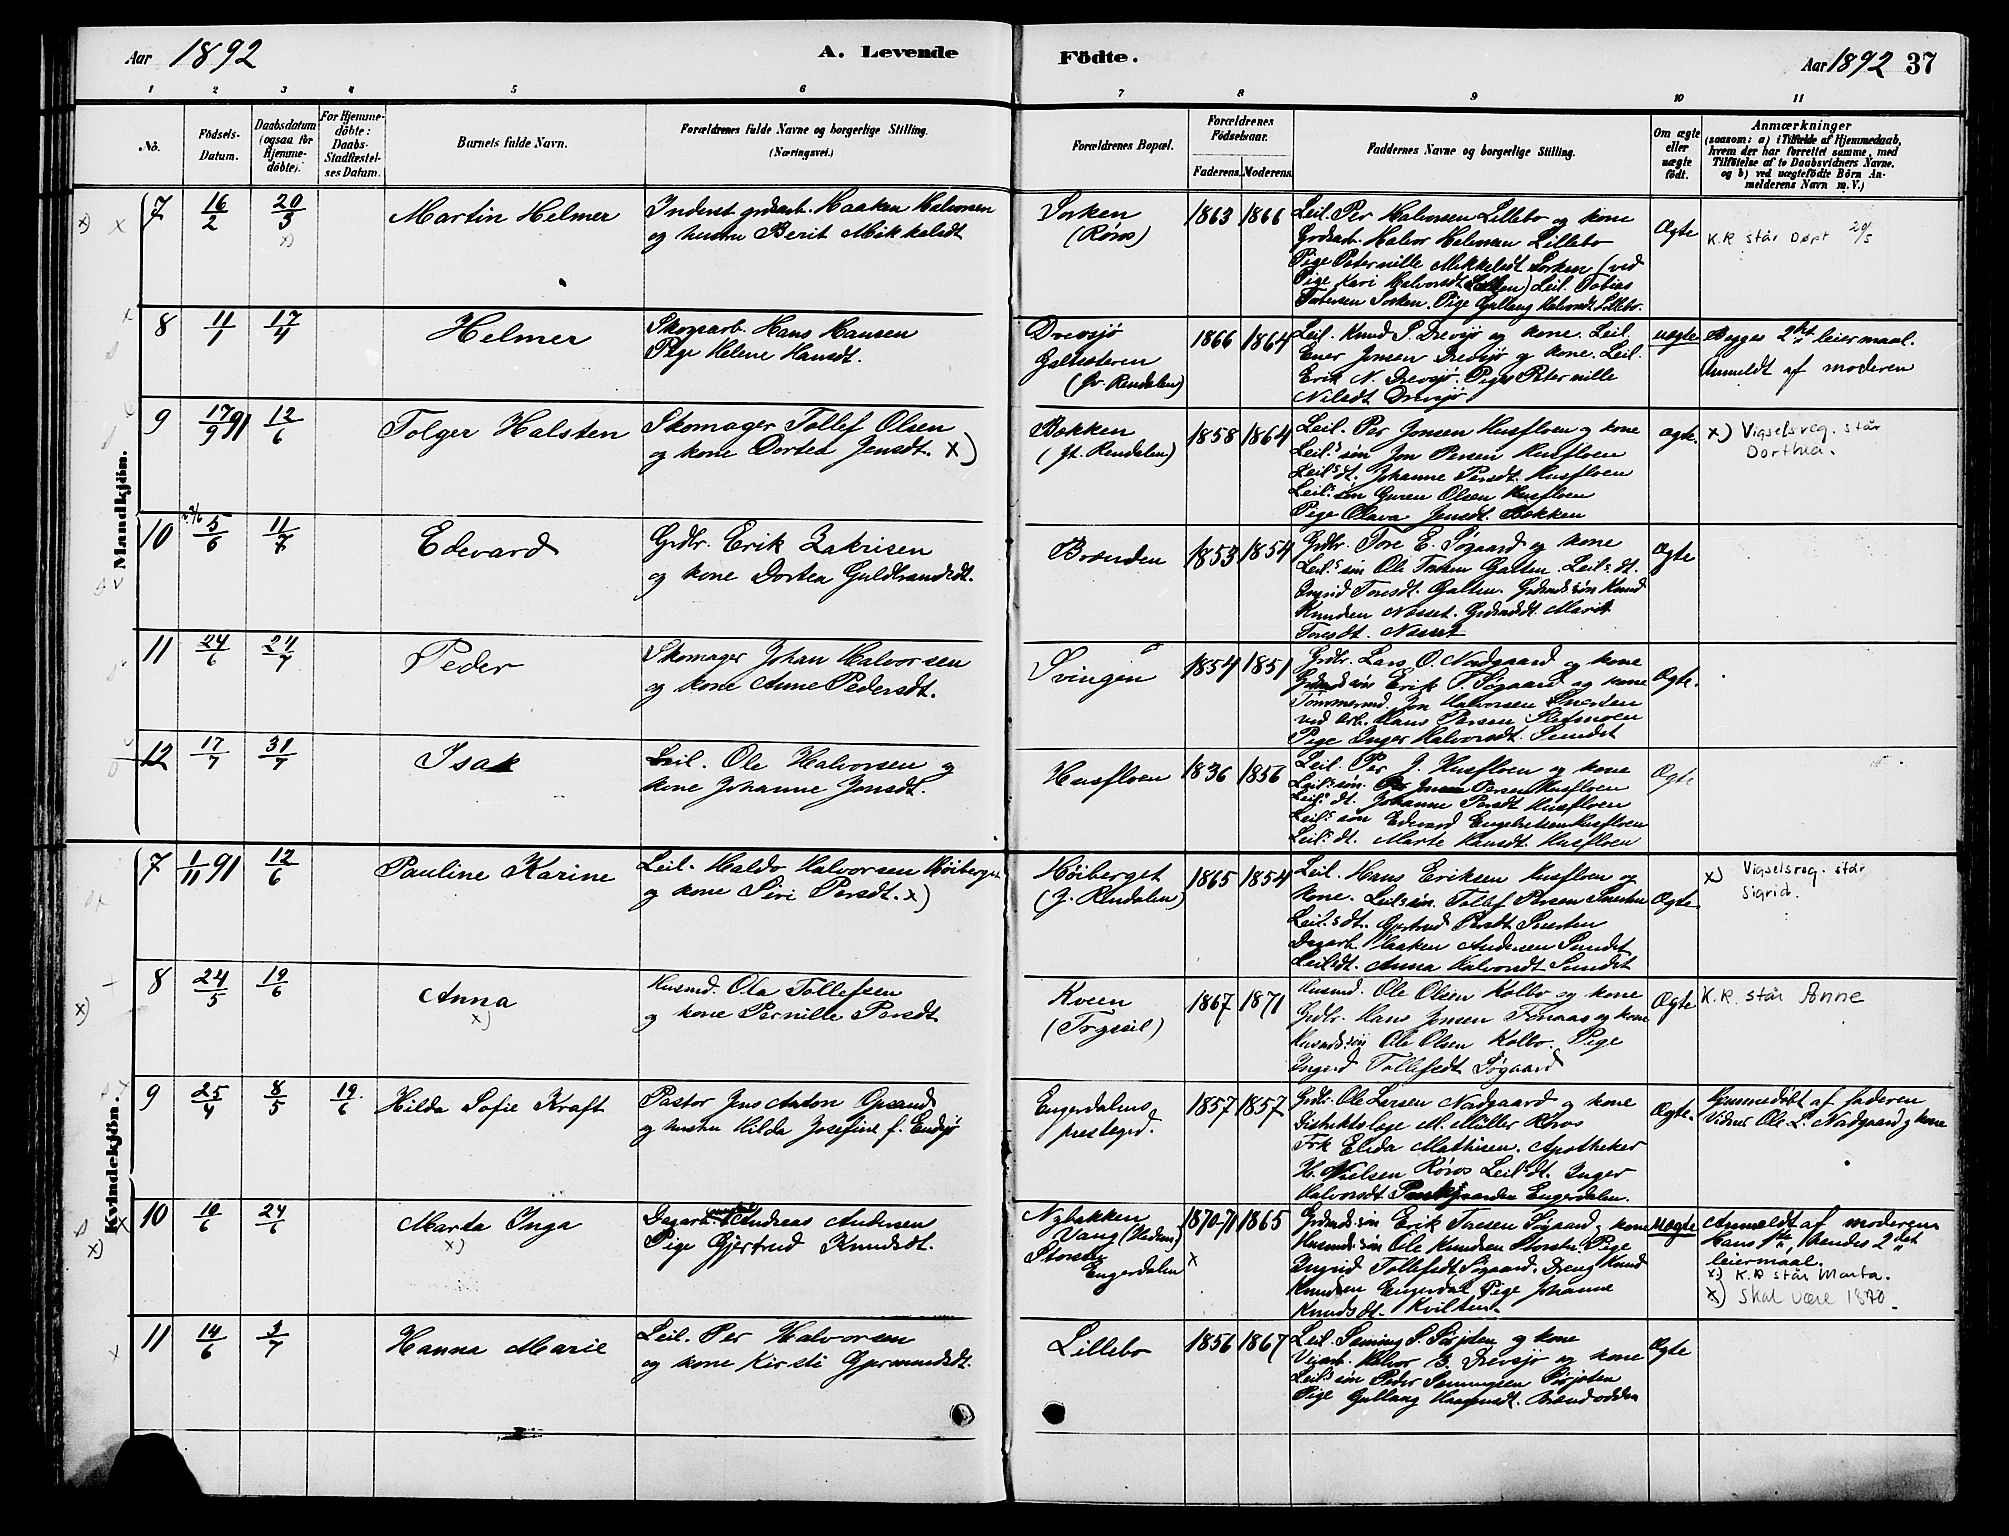 Aar 1892
A. Levende
Födte.
Aar 1892 37
1 2 3 4 5 6 7 8 9 10 11
No.
Födsels-
Datum.
Daabsdatum
(ogsaa for
Hjemme-
døbte).
For Hjemme-
døbte:
Daabs-
Stadfæstel-
ses Datum.
Barnets fulde Navn.
Forældrenes fulde Navne og borgerlige Stilling.
(Næringsvei.)
Forældrenes Bopæl.
Forældrenes
Födselsaar.
Faderens. Moderens.
Faddernes Navne og borgerlige Stilling.
Om ægte
eller
uægte
födt.
Anmærkninger
(saasom: a) i Tilfælde af Hjemmedaab,
hvem der har forrettet samme, med
Tilføielse af to Daabsvidners Navne,
og b) ved uægtefödte Börn An-
melderens Navn m. V.)
Mandkjön.
7 16/2 20/3 x)
Martin Helmer
Inderst grdsarb. Haaken Halvorsen
og hustru Berit Mikkelsdt
Sorken
(Røros)
1863 1866
Leil. Per Halvorsen Lillebo og kone
Grdsarb. Halvor Halvorsen Lillebo
Pige Peternille Mikkelsdt Sorken (ved
Pige Kari Halvorsdt Sorken) Leil. Tobias
Tobiesen Sorken. Pige Gullaug Halvorsdt Lillebo.
Ægte
K.R står Døpt 20/5
8 11/1 17/4
Helmer
Skogsarb. Hans Hansen
Pige Helene Hansdt.
Drevsjø
Galtestren
(Øv. Rendalen)
1866 1864
Leil. Knud P. Drevsjø og kone. Leil.
Ener Jonsen Drevsjø og kone. Leil.
Erik N. Drevsjø. Pige Peternille
Nilsdt Drevsjø
uægte
Begges 2det leiermaal.
Anmeldt af moderen
9 17/9 91 12/6
Tolger Halsten
Skomager Tollef Olsen
og kone Dortea Jensdt. x)
Bækken
(Yt. Rendalen)
1858 1864
Leil. Per Jonsen Husfloen og kone
Leil.s søn Jon Persen Husfloen
Leil.s dt. Johanne Persdt. Husfloen
Leil.s søn Guren Olsen Husfloen
Pige Olava Jensdt. Bækken
Ægte.
x) Vigselsreg. står
Dorthea.
10 5/6 11/7
Edevard
Grdbr. Erik Zakrisen
og kone Dortea Guldbrandsdt.
Brænden
1853 1854
Grdbr. Tore E. Søgaard og kone
Leil.s søn Ole Torsen Galten. Leil.s dt.
Ingrid Toresdt. Galten. Grdmds søn Knud
Knudsen Næsset. Grdmdsdt. Marit
Toresdt. Næsset
Ægte
11 24/6 24/7
Peder
Skomager Johan Halvorsen
og kone Anne Pedersdt.
Svingen
1854 1851
Grdbr. Lars O. Nordgaard og kone
Grdmds søn Erik T. Søgaard og kone
Tømmermd. Jon Halvorsen Snerten
ved arb. Hans Persen Sletmoen
Pige Inger Halvorsdt. Sundet
Ægte.
12 17/7 31/7
Isak
Leil. Ole Halvorsen og
kone Johanne Jonsdt.
Husfloen
1836 1856
Leil. Per J. Husfloen og kone
Leil.s søn Per Persen Husfloen
Leil.s dt. Johanne Persdt Husfloen
Leil.s søn Edevard Engebretsen Husfloen
Leil.s dt. Marte Hansdt. Husfloen
Ægte
Kvindekjön.
7 1/11 91 12/6
Pauline Karine
Leil. Haldo Halvorsen Høiberget
og kone Siri Persdt. x)
Høiberget
(Y. Rendalen)
1865 1854
Leil. Hans Eriksen Husfloen og
kone. Leil.s søn. Tollef Persen Snerten
Leil.s dt. Gjertrud Persdt Snerten
Dagarb. Haaken Andersen Sundet
Leilsdt. Anna Halvorsdt Sundet
Ægte.
x) Vigselsreg. står
Sigrid.
8 24/5 19/6
Anna
x)
Husmd. Ola Tollefsen
og kone Pernille Persdt
Kveen
(Trysil)
1867 1871
Husmd. Ole Olsen Kolbo og kone
Grdbr. Hans Jonsen Femaas og kone
Husmds søn Ole Olsen Kolbo. Pige
Ingrid Tollefsdt Søgaard
Ægte
K.R. står Anne
9 25/4 8/5 19/6
Hilda Sofie Kraft
Pastor Jens Anton Opsand
og hustru Hilda Josefine f. Endsjø
Engerdalens
prestegrd.
1857 1857
Grdbr. Ole Larsen Nordgaard og kone
Distriktslæge M. Müller Røros
Frk Elida Mathisen. Apotheker
H. Nielsen Røros Leil.s dt. Inger
Halvorsdt Prestegaarden Engerdalen.
Ægte.
Hjemmedøbt af faderen
Vidner Ole L. Nordgaard og kone
10 10/6 24/6
Marta Inga
x)
Dagarb. Andreas Andersen
Pige Gjertrud Knudsdt.
Nybakken
Vang (Hedem.)
Storsnt
Engerdalen
1870-71 1865
x
Grdmds søn Erik Tæsen Søgaard og kone
Husmds søn Ole Knudsen Storsnt. Pige
Ingrid Tollefsdt Søgaard. Dreng Knud
Knudsen Engerdal Pige Johanne
Knudsdt. Kvilten
Uægte
Anmeldt af moderen
Hans 1ste, hendes 2det
leiermaal.
x) K.R står Marta.
x) skal være 1870.
11 14/6 3/7
Hanna Marie
Leil. Per Halvorsen
og kone Kirsti Gjermundsdt.
Lillebo
1856 1867
Leil. Seming P. Sørjoten og kone
Veiarb. Halvor B. Drevsjø og kone
Leil.s søn Peder Semingsen Sørjoten
Pige Gullaug Haagensdt. Brændodden
Ægte